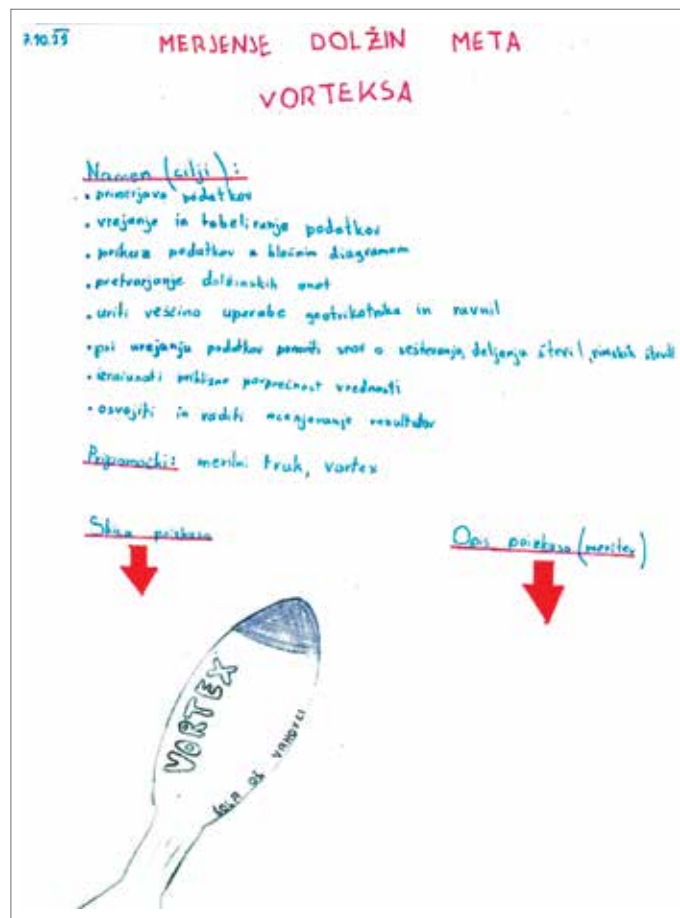 MERJENJE DOLŽIN META
VORTEKSA
Namen (cilji):
• primerjava podatkov
• urejanje in tabeliranje podatkov
• prikaz podatkov s bločnim diagramom
• pretvarjanje dolžinskih enot
• uriti veščino uporabe geotrikotnika in ravnil
• pri urejanju podatkov ponoviti snov o seštevanju, deljenju števil, rimskih števil
• izračunati približno povprečnost vrednosti
• osvojiti in vaditi ocenjevanje rezultatov
Pripomočki: merilni trak, vortex
Skica poizkusa
Opis poizkusa (meritev)
VORTEX